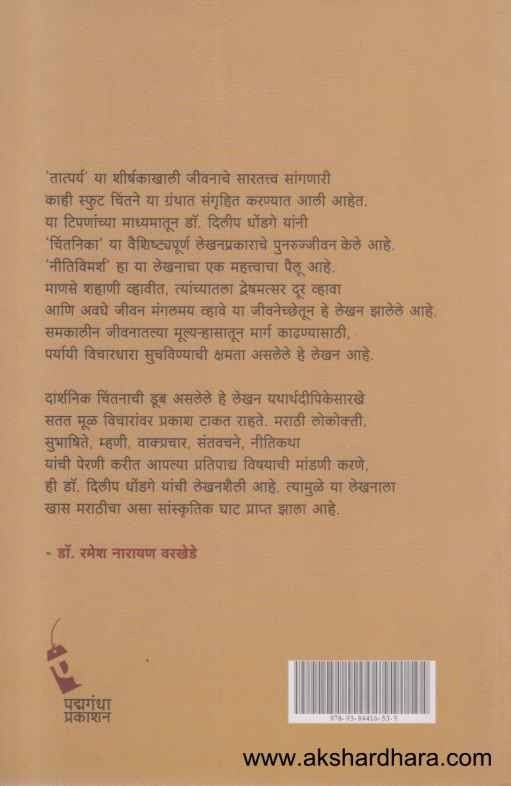 'तात्पर्य' या शीर्षकाखाली जीवनाचे सारतत्त्व सांगणारी
काही स्फुट चिंतने या ग्रंथात संगृहित करण्यात आली आहेत.
या टिपणांच्या माध्यमातून डॉ. दिलीप धोंडगे यांनी
'चिंतनिका' या वैशिष्ट्यपूर्ण लेखनप्रकाराचे पुनरुज्जीवन केले आहे.
'नीतिविमर्श' हा या लेखनाचा एक महत्त्वाचा पैलू आहे.
माणसे शहाणी व्हावीत, त्यांच्यातला द्वेषमत्सर दूर व्हावा
आणि अवघे जीवन मंगलमय व्हावे या जीवनेच्छेतून हे लेखन झालेले आहे.
समकालीन जीवनातल्या मूल्यऱ्हासातून मार्ग काढण्यासाठी,
पर्यायी विचारधारा सुचविण्याची क्षमता असलेले हे लेखन आहे.
दार्शनिक चिंतनाची डूब असलेले हे लेखन यथार्थदीपिकेसारखे
सतत मूळ विचारांवर प्रकाश टाकत राहते. मराठी लोकोक्ती,
सुभाषिते, म्हणी, वाक्प्रचार, संतवचने, नीतिकथा
यांची पेरणी करीत आपल्या प्रतिपाद्य विषयाची मांडणी करणे,
ही डॉ. दिलीप धोंडगे यांची लेखनशैली आहे. त्यामुळे या लेखनाला
खास मराठीचा असा सांस्कृतिक घाट प्राप्त झाला आहे.
- डॉ. रमेश नारायण वरखेडे
पद्मगंधा
प्रकाशन
978-93-84416-53-5
www.akshardhara.com